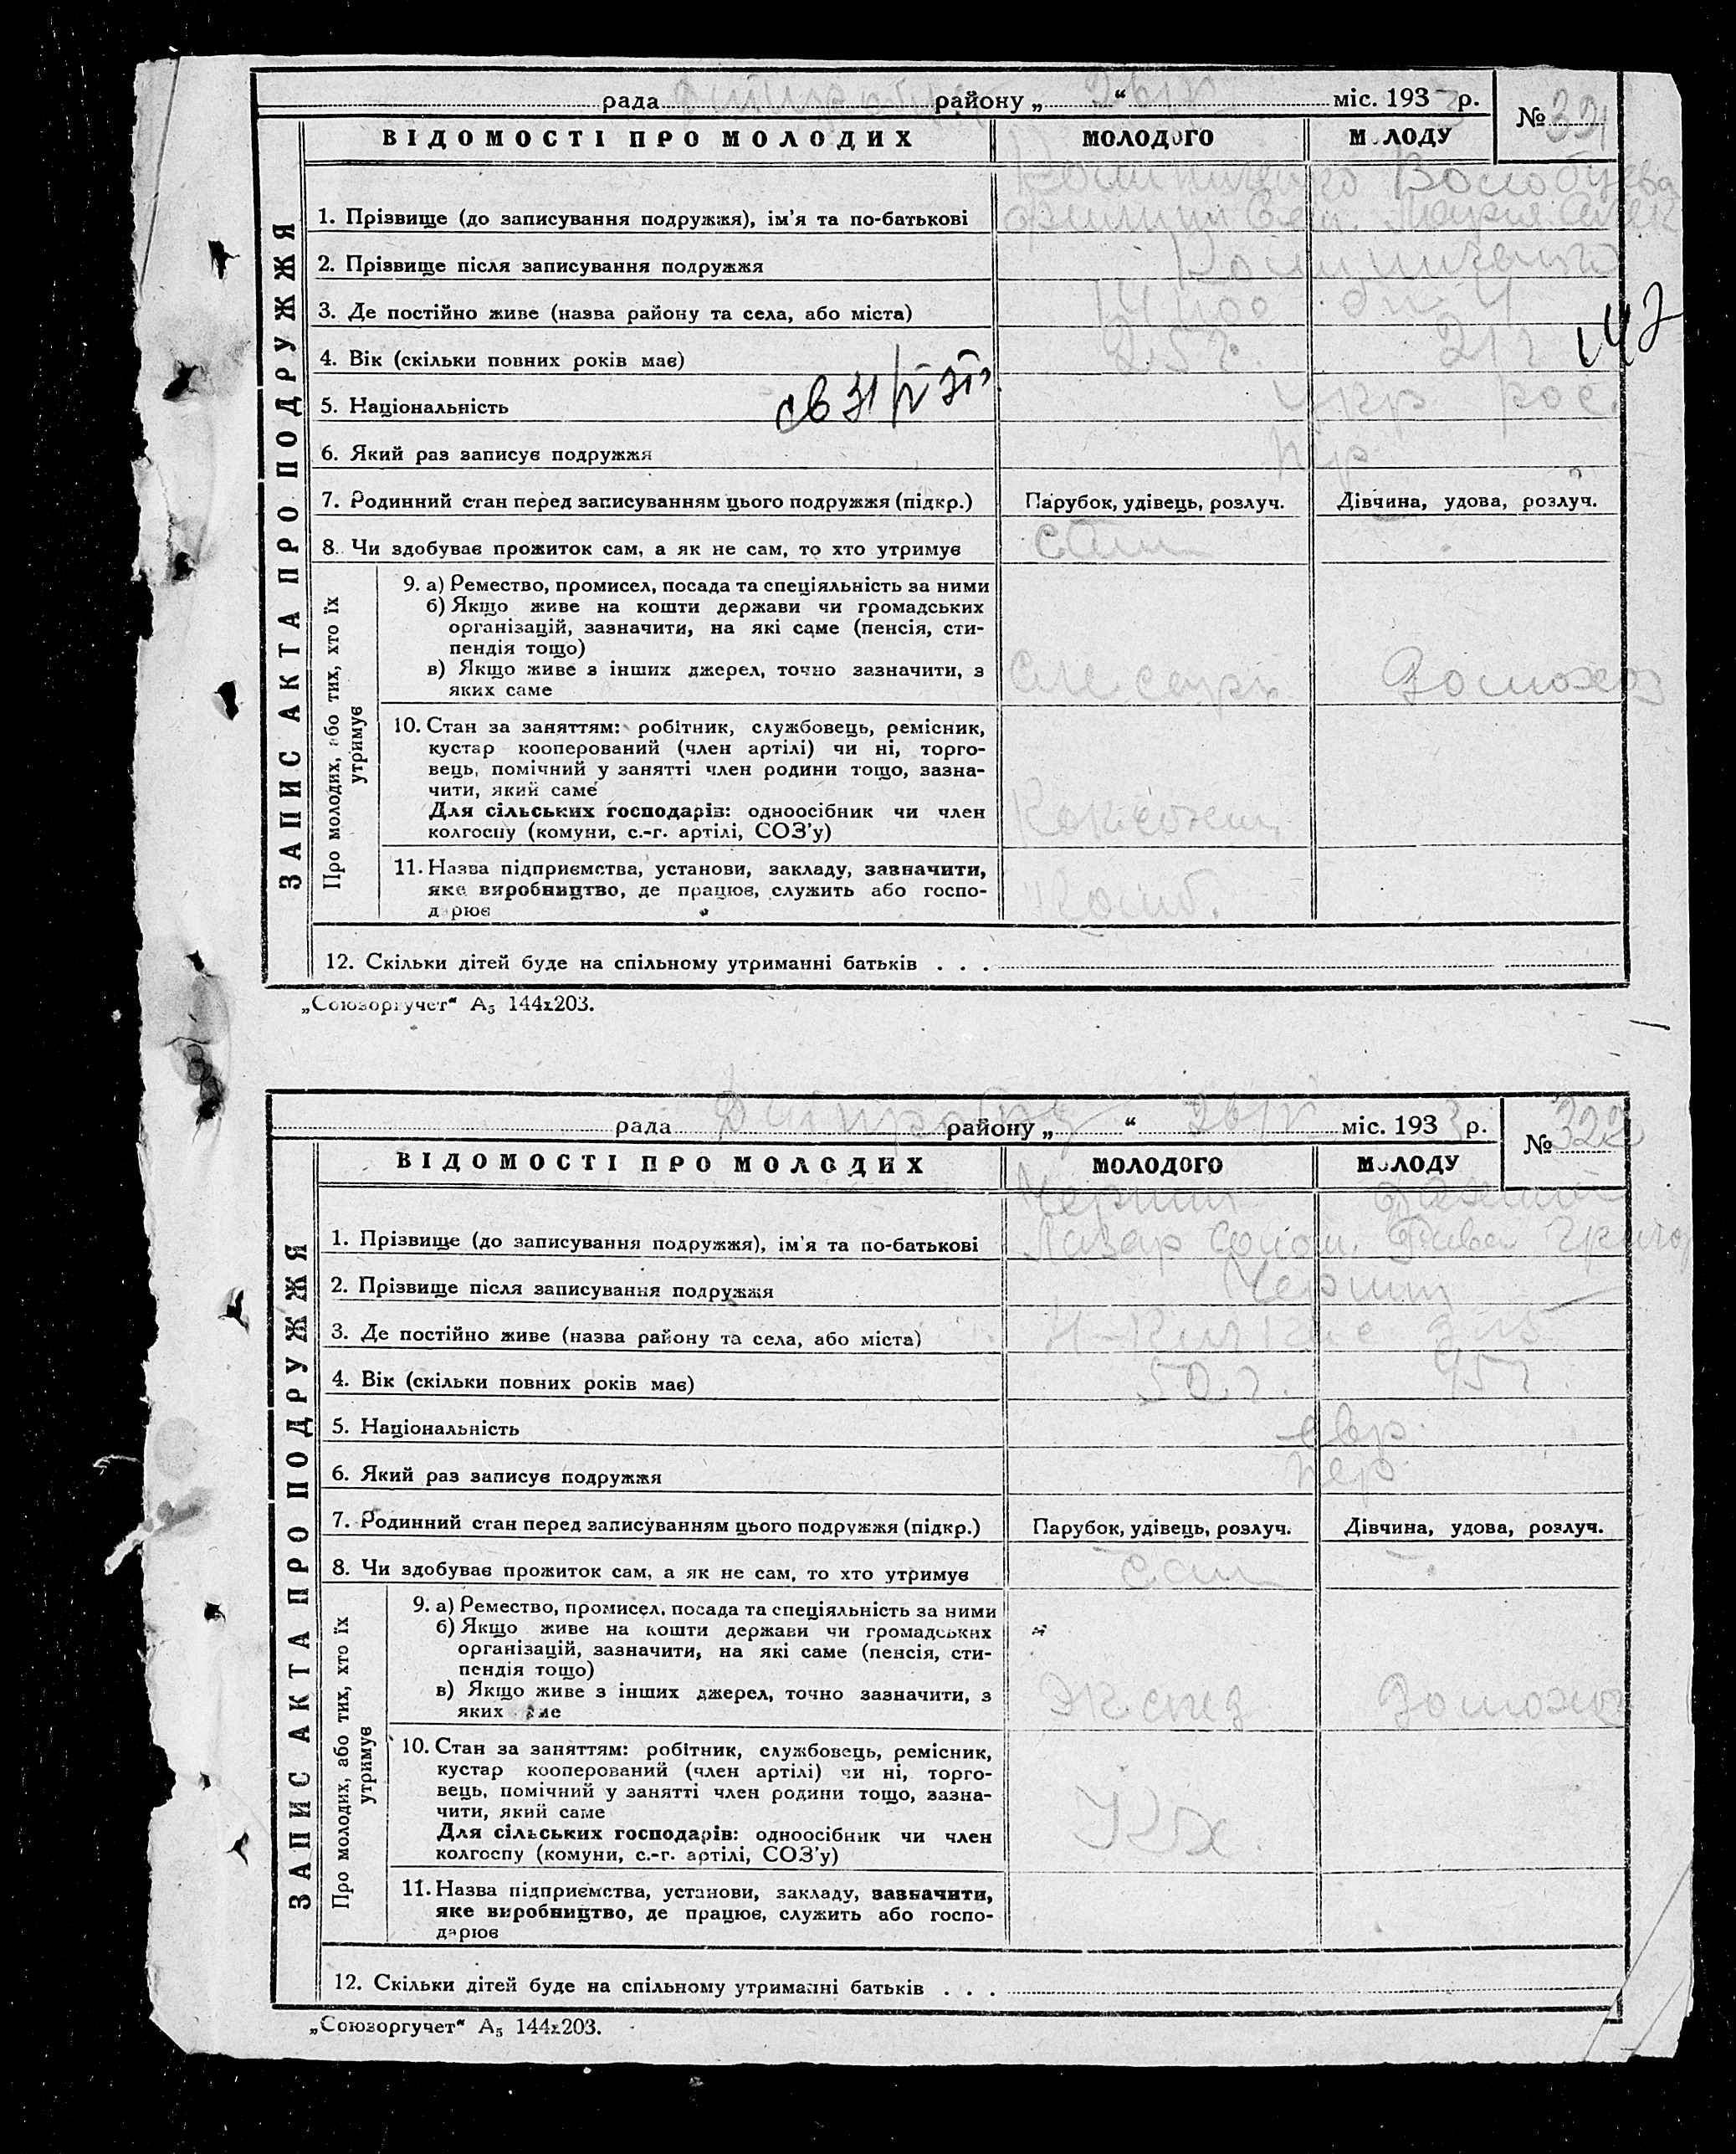 рада району „ “ 26/IV міс. 1933 р.
№ 321
ВІДОМОСТІ ПРО МОЛОДИХ МОЛОДОГО МОЛОДУ
ЗАПИС АКТА ПРО ПОДРУЖЖЯ
Волобуєва
1. Прізвище (до записування подружжя), ім'я та по-батькові Марія
2. Прізвище після записування подружжя
3. Де постійно живе (назва району та села, або міста)
4. Вік (скільки повних років має) 25 г. 21 г
147
5. Національність укр рос.
6. Який раз записує подружжя
7. Родинний стан перед записуванням цього подружжя (підкр.) Парубок, удівець, розлуч. Дівчина, удова, розлуч.
8. Чи здобуває прожиток сам, а як не сам, то хто утримує сам
Про молодих, або тих, хто їх утримує
9. а) Ремество, промисел, посада та спеціяльність за ними
б) Якщо живе на кошти держави чи громадських
організацій, зазначити, на які саме (пенсія, сти-
пендія тощо)
в) Якщо живе з інших джерел, точно зазначити, з
яких саме слесарь домохоз
10. Стан за заняттям: робітник, службовець, ремісник,
кустар кооперований (член артілі) чи ні, торго-
вець, помічний у занятті член родини тощо, зазна-
чити, який саме
Для сільських господарів: одноосібник чи член
колгоспу (комуни, с.-г. артілі, СОЗ'у)
11. Назва підприємства, установи, закладу, зазначити,
яке виробництво, де працює, служить або госпо-
дарює
12. Скільки дітей буде на спільному утриманні батьків . . .
„Союзоргучет“ А5 144х203.
рада району „ “ 26/IV міс. 1933 р.
№ 322
ВІДОМОСТІ ПРО МОЛОДИХ МОЛОДОГО МОЛОДУ
ЗАПИС АКТА ПРО ПОДРУЖЖЯ
Черпин
1. Прізвище (до записування подружжя), ім'я та по-батькові Лазар Солом.
2. Прізвище після записування подружжя Черпин
3. Де постійно живе (назва району та села, або міста)
4. Вік (скільки повних років має) 50 г. 45 г
5. Національність евр.
6. Який раз записує подружжя пер
7. Родинний стан перед записуванням цього подружжя (підкр.) Парубок, удівець, розлуч. Дівчина, удова, розлуч.
8. Чи здобуває прожиток сам, а як не сам, то хто утримує сам
Про молодих, або тих, хто їх утримує
9. а) Ремество, промисел, посада та спеціяльність за ними
б) Якщо живе на кошти держави чи громадських
організацій, зазначити, на які саме (пенсія, сти-
пендія тощо)
в) Якщо живе з інших джерел, точно зазначити, з
яких саме экспед домохоз
10. Стан за заняттям: робітник, службовець, ремісник,
кустар кооперований (член артілі) чи ні, торго-
вець, помічний у занятті член родини тощо, зазна-
чити, який саме
Для сільських господарів: одноосібник чи член
колгоспу (комуни, с.-г. артілі, СОЗ'у)
11. Назва підприємства, установи, закладу, зазначити,
яке виробництво, де працює, служить або госпо-
дарює
12. Скільки дітей буде на спільному утриманні батьків . . .
„Союзоргучет“ А5 144х203.